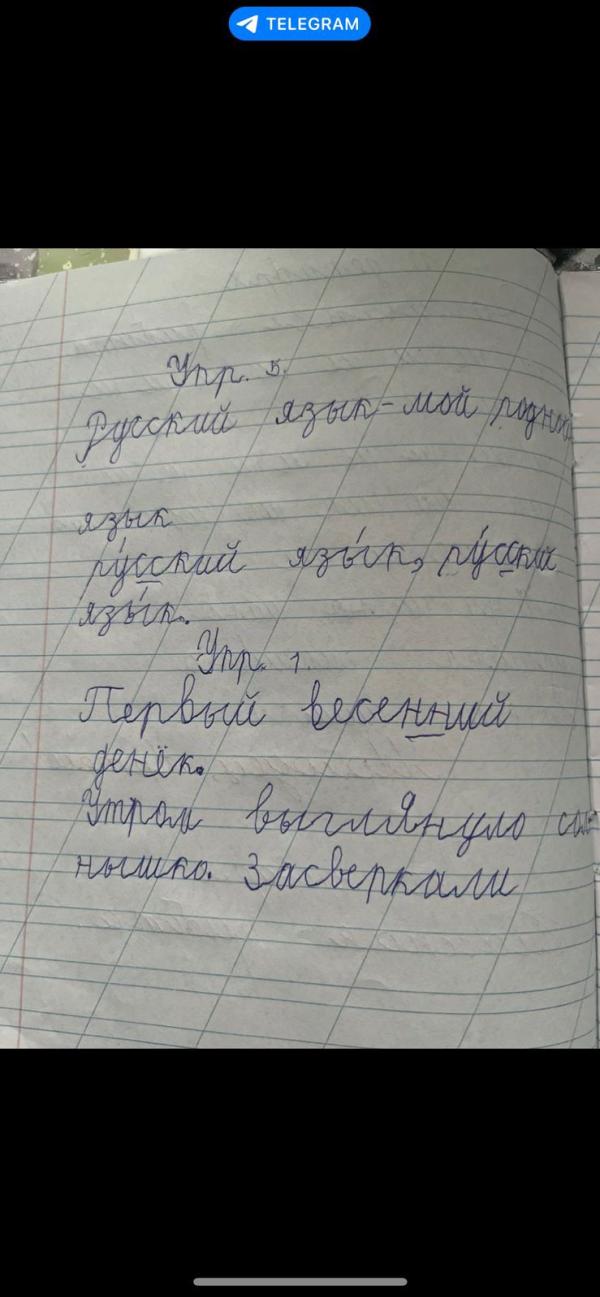 TELEGRAM
Упр. 5.
Русский язык - мой родной
язык
ру́сский язы́к, ру́сский
язы́к.
Упр. 1.
Первый весенний
денёк.
Утром выглянуло сол
нышко. Засверкали